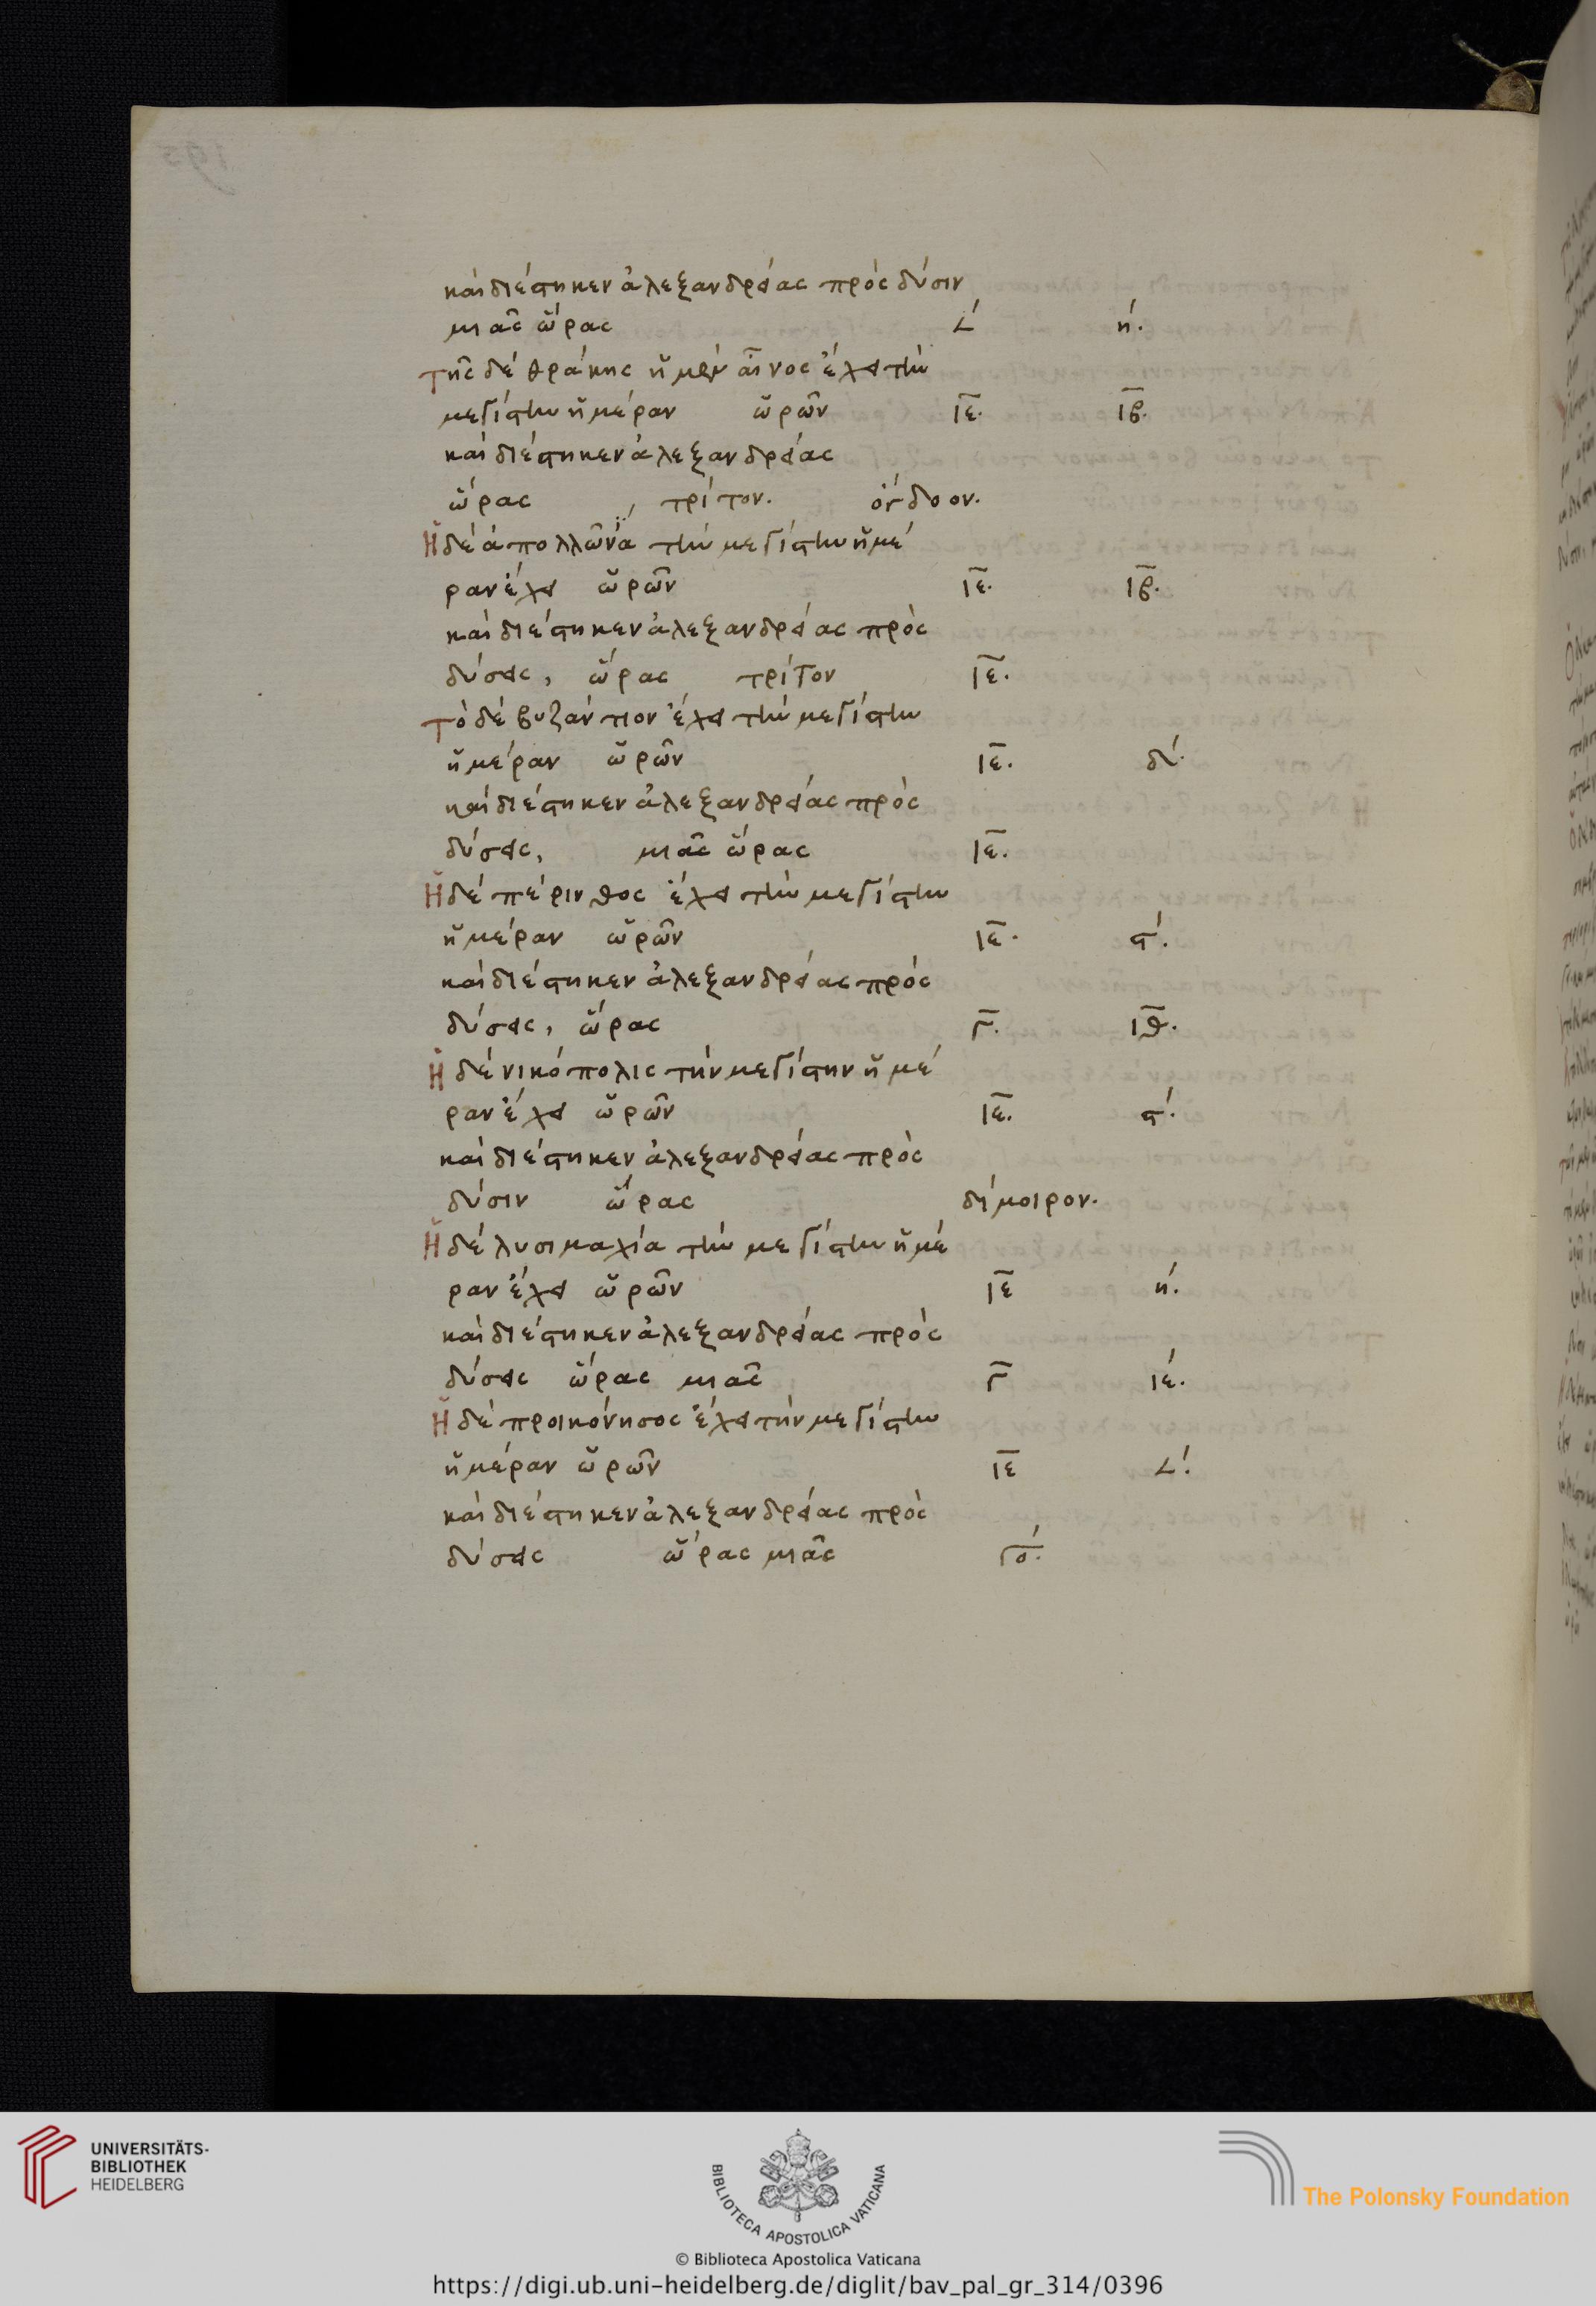 καὶ διέστηκεν ἀλεξανδρείας πρὸς δύσιν
μιᾶς ὥρας 𐅵´ η´.
τῆς δὲ θράκης ἡ μὲν αἶνος ἔχει τὴν
μεγίστην ἡμέραν ὡρῶν ιε. ιβ.
καὶ διέστηκεν ἀλεξανδρείας
ὥρας, τρίτον. ὄγδοον.
Ἡ δὲ ἀπολλωνία τὴν μεγίστην ἡμέ
ραν ἔχει ὡρῶν ιε. ιβ.
καὶ διέστηκεν ἀλεξανδρείας πρὸς
δύσεις, ὥρας τρίτον ιε.
τὸ δὲ βυζάντιον ἔχει τὴν μεγίστην
ἡμέραν ὡρῶν ιε. δ´.
καὶ διέστηκεν ἀλεξανδρείας πρὸς
δύσεις, μιᾶς ὥρας ιε.
Ἡ δὲ πέρινθος ἔχει τὴν μεγίστην
ἡμέραν ὡρῶν ιε. ϛ´.
καὶ διέστηκεν ἀλεξανδρείας πρὸς
δύσεις, ὥρας γ. ιθ.
Ἡ δὲ νικόπολις τὴν μεγίστην ἡμέ
ραν ἔχει ὡρῶν ιε. ϛ´.
καὶ διέστηκεν ἀλεξανδρείας πρὸς
δύσιν ὥρας δίμοιρον.
Ἡ δὲ λυσιμαχία τὴν μεγίστην ἡμέ
ραν ἔχει ὡρῶν ιε η´.
καὶ διέστηκεν ἀλεξανδρείας πρὸς
δύσεις ὥρας μιᾶς γ ιε´.
Ἡ δὲ προικόνησος ἔχει τὴν μεγίστην
ἡμέραν ὡρῶν ιε 𐅵´.
καὶ διέστηκεν ἀλεξανδρείας πρὸς
δύσεις ὥρας μιᾶς γο´.
UNIVERSITÄTS-
BIBLIOTHEK
HEIDELBERG
BIBLIOTECA APOSTOLICA VATICANA
The Polonsky Foundation
© Biblioteca Apostolica Vaticana
https://digi.ub.uni-heidelberg.de/diglit/bav_pal_gr_314/0396